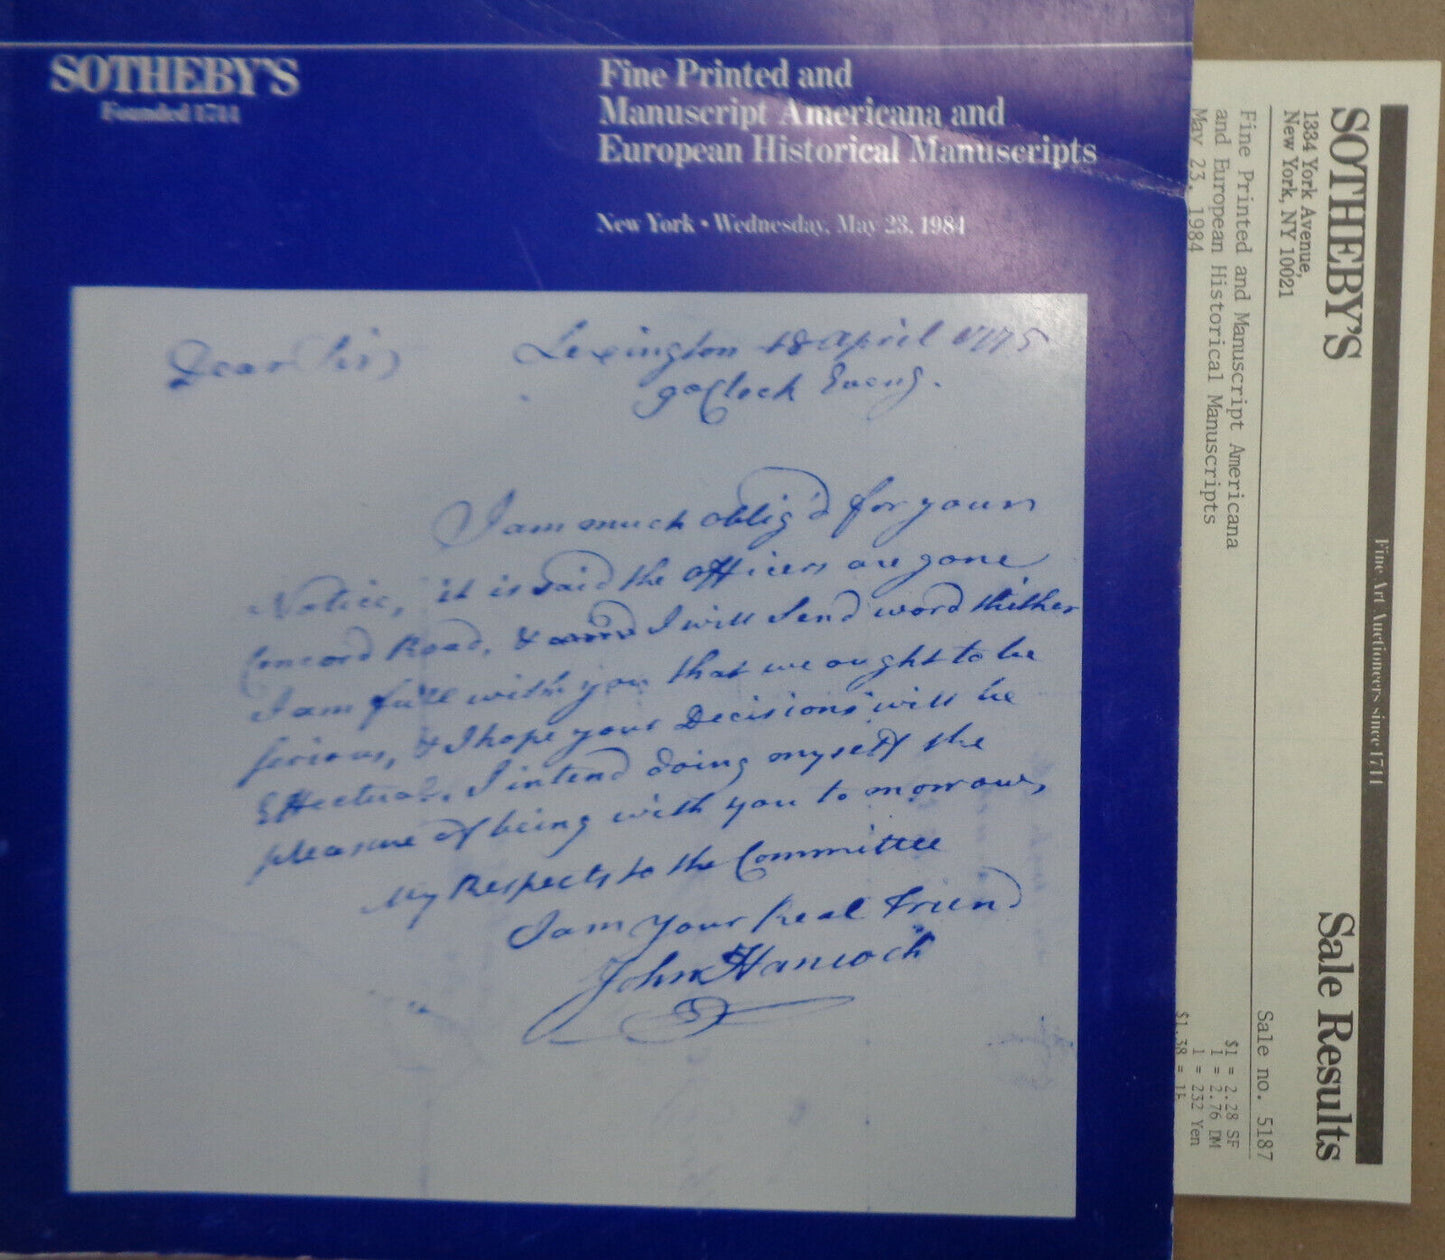 SOTHEBY'S
Founded 1744
Fine Printed and
Manuscript Americana and
European Historical Manuscripts
New York • Wednesday, May 23, 1984
Dear Sir,
Lexington 18 April 1775
9 oClock Eveng.
I am much oblig'd for your
Notice, it is said the officers are gone
Concord Road, & I will send word thither
I am full with you that we ought to be
serious, & I hope your Decisions will be
Effectual. I intend doing myself the
pleasure of being with you to morrow,
My Respects to the Committee
I am Your Real Friend
John Hancock
Fine Art Auctioneers since 1744
SOTHEBY'S
Sale Results
1334 York Avenue,
New York, NY 10021
Sale no. 5187
Fine Printed and Manuscript Americana
and European Historical Manuscripts
May 23, 1984
$1 = 2.28 SF
1 = 2.76 DM
1 = 232 Yen
$1.38 = 1